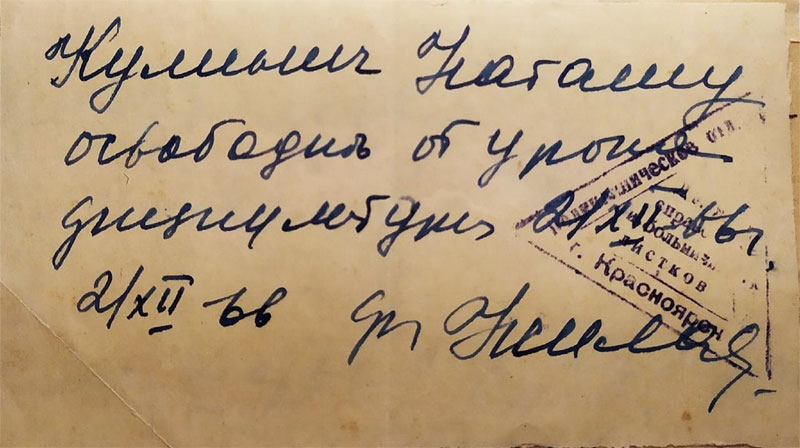 Наташу
освободить от урока
физкультуры 2/XII-66г.
2/XII 66 др
Поликлиническое отд.
справок
больничных
листков
г. Красноярск